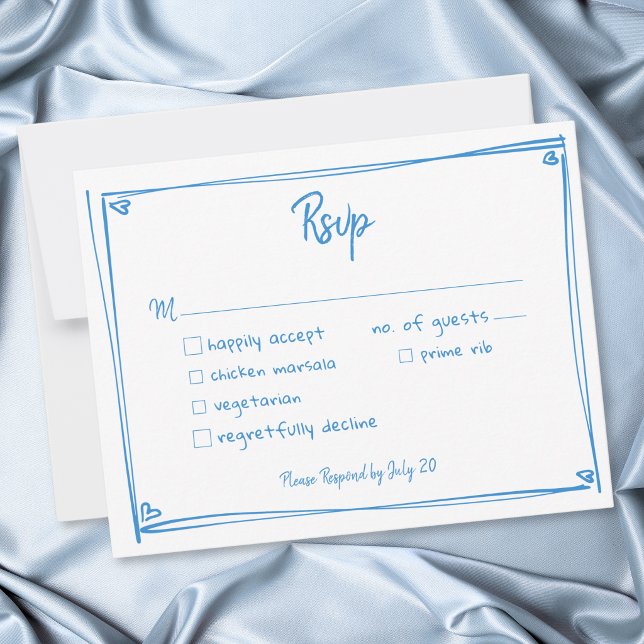 Rsvp
M
happily accept no. of guests
chicken marsala prime rib
vegetarian
regretfully decline
Please Respond by July 20